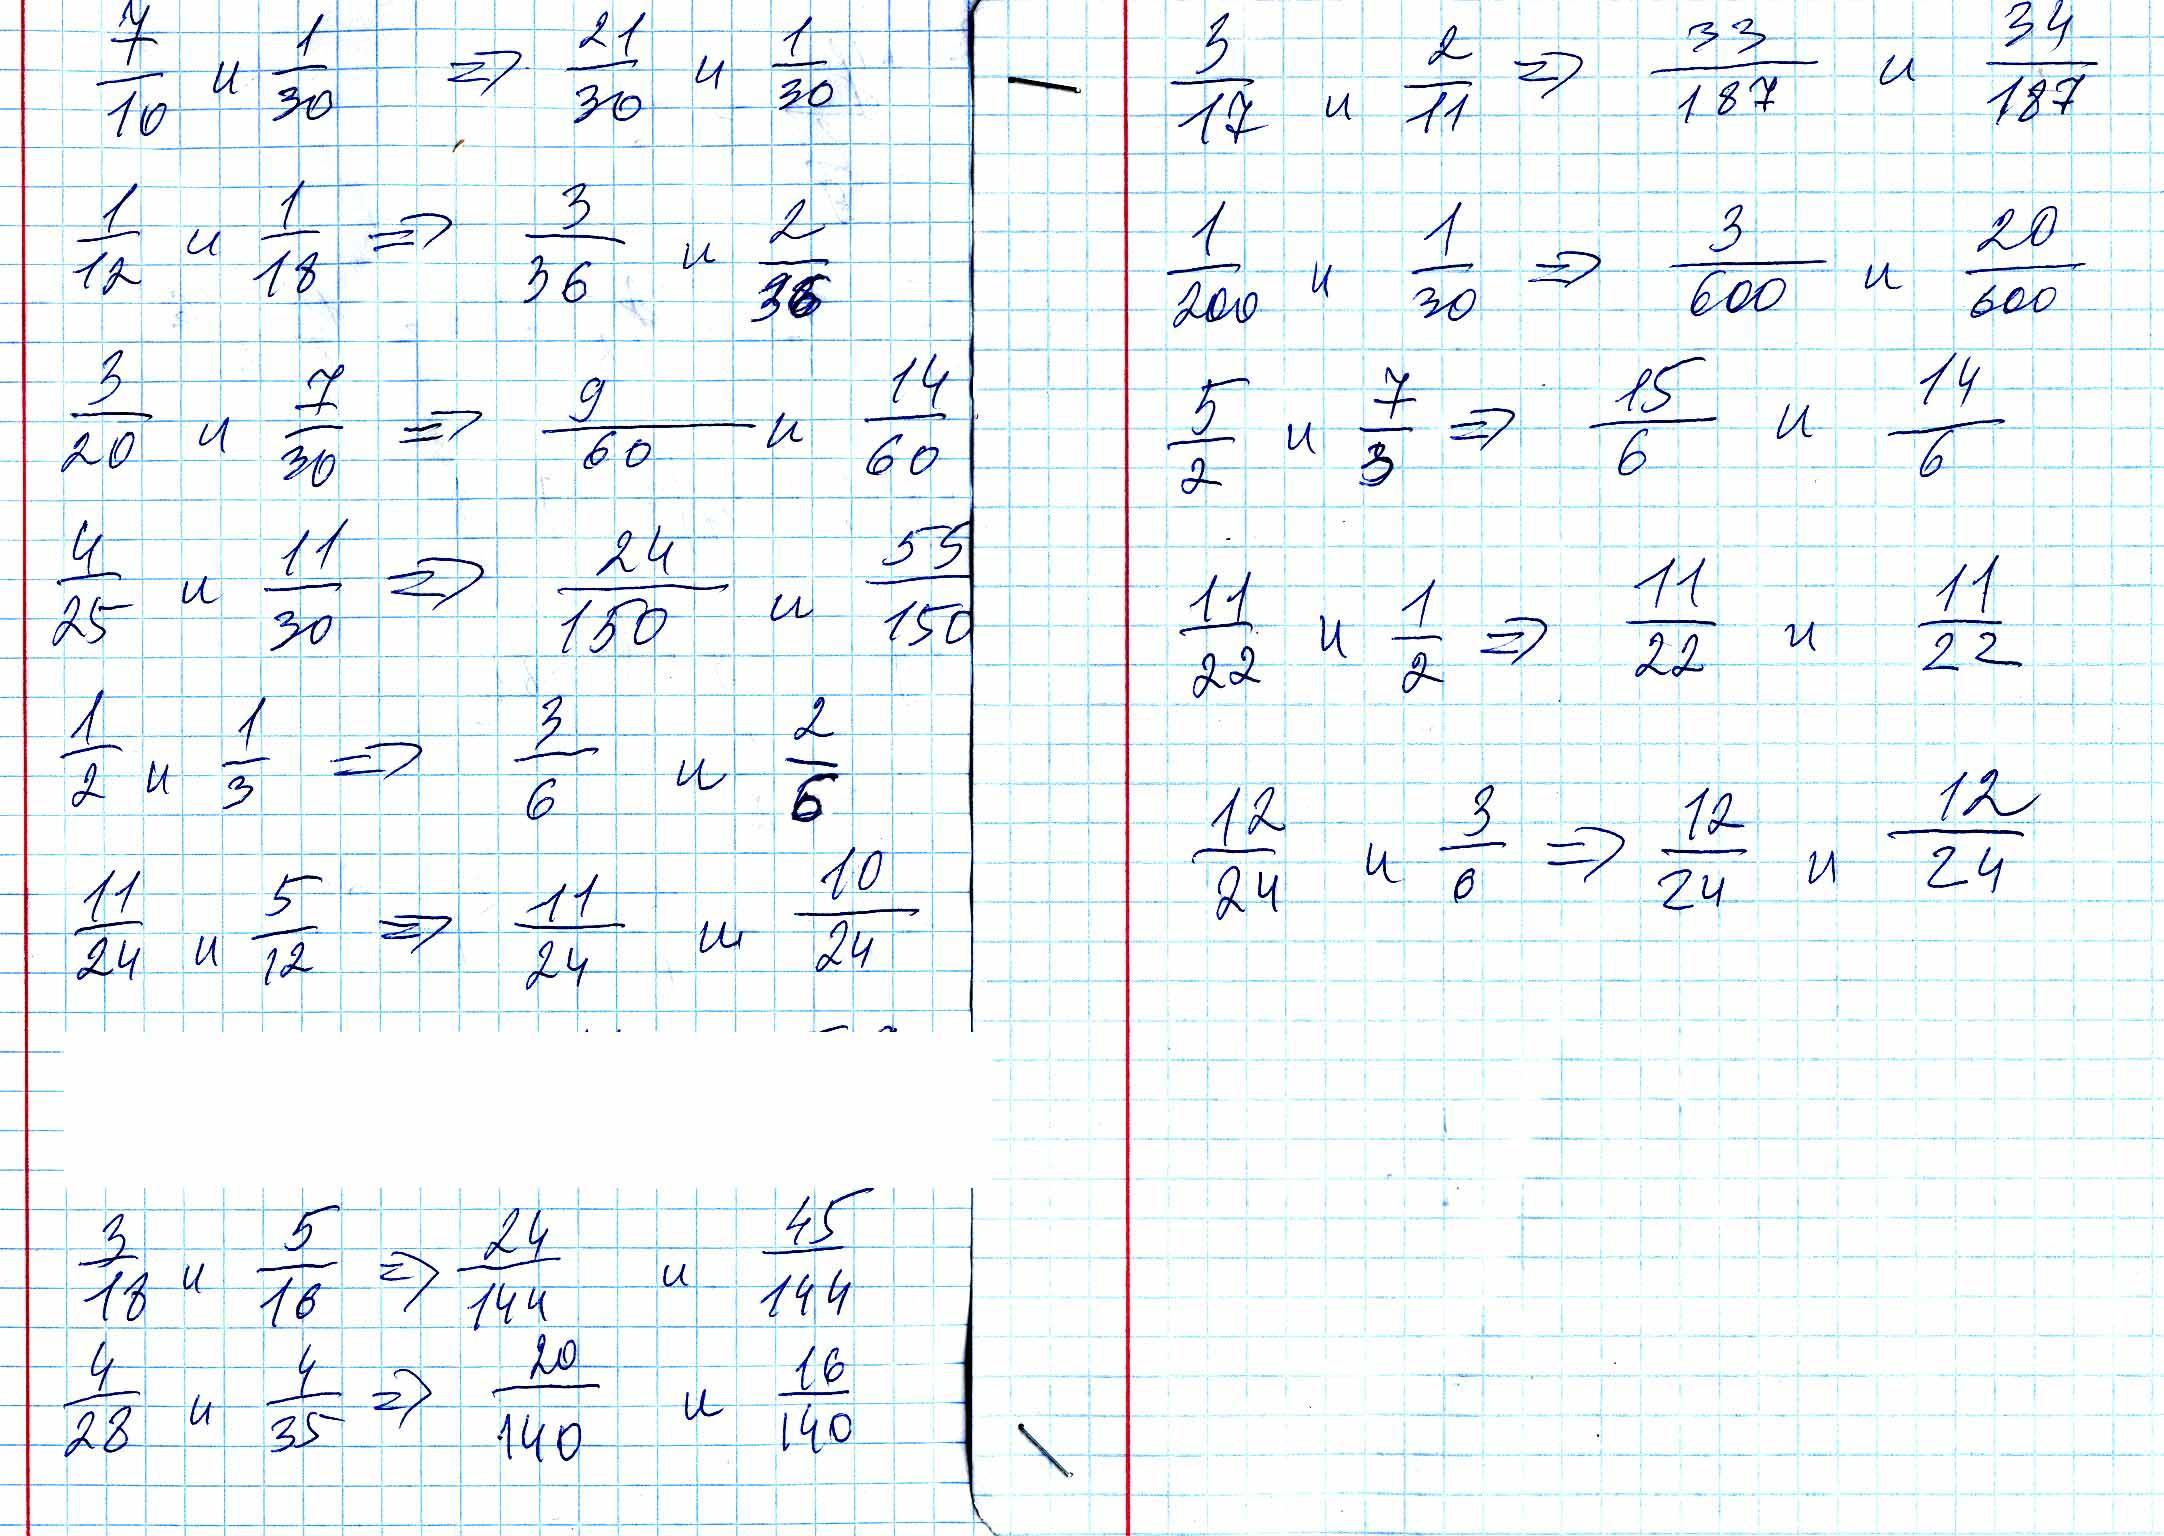 7/10 и 1/30 => 21/30 и 1/30
1/12 и 1/18 => 3/36 и 2/36
3/20 и 7/30 => 9/60 и 14/60
4/25 и 11/30 => 24/150 и 55/150
1/2 и 1/3 => 3/6 и 2/6
11/24 и 5/12 => 11/24 и 10/24
3/18 и 5/16 => 24/144 и 45/144
4/28 и 4/35 => 20/140 и 16/140
3/17 и 2/11 => 33/187 и 34/187
1/200 и 1/30 => 3/600 и 20/600
5/2 и 7/3 => 15/6 и 14/6
11/22 и 1/2 => 11/22 и 11/22
12/24 и 3/6 => 12/24 и 12/24